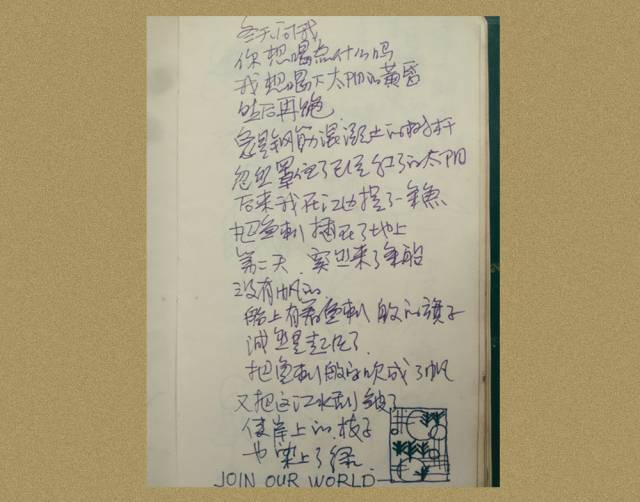 冬天问我
你想喝点什么吗
我想喝下太阳的黄昏
然后再跑
总是钢筋混凝土的树杆
忽然罩住了已经红了的太阳
后来我在江边捉了一条鱼
把鱼刺插在了地上
第二天 突然来了条船
没有帆的
船上有着鱼刺般的旗子
风
把鱼刺般的吹成了帆
又把这江水刮皱了
使岸上的枝子
也染上了绿
JOIN OUR WORLD